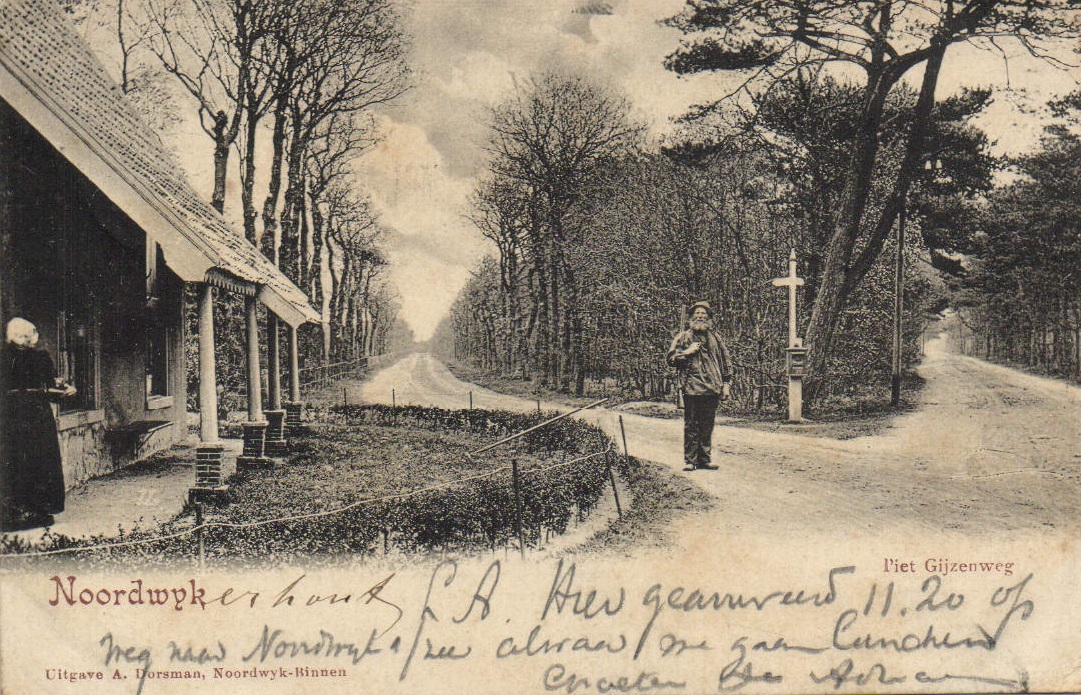 Noordwykerhout
Piet Gijzenweg
L. A. Hier gearriveerd 11.20 op
Weg naar Noordwyk a/zee alwaar we gaan lunchen
Groeten
Uitgave A. Dorsman, Noordwyk-Binnen